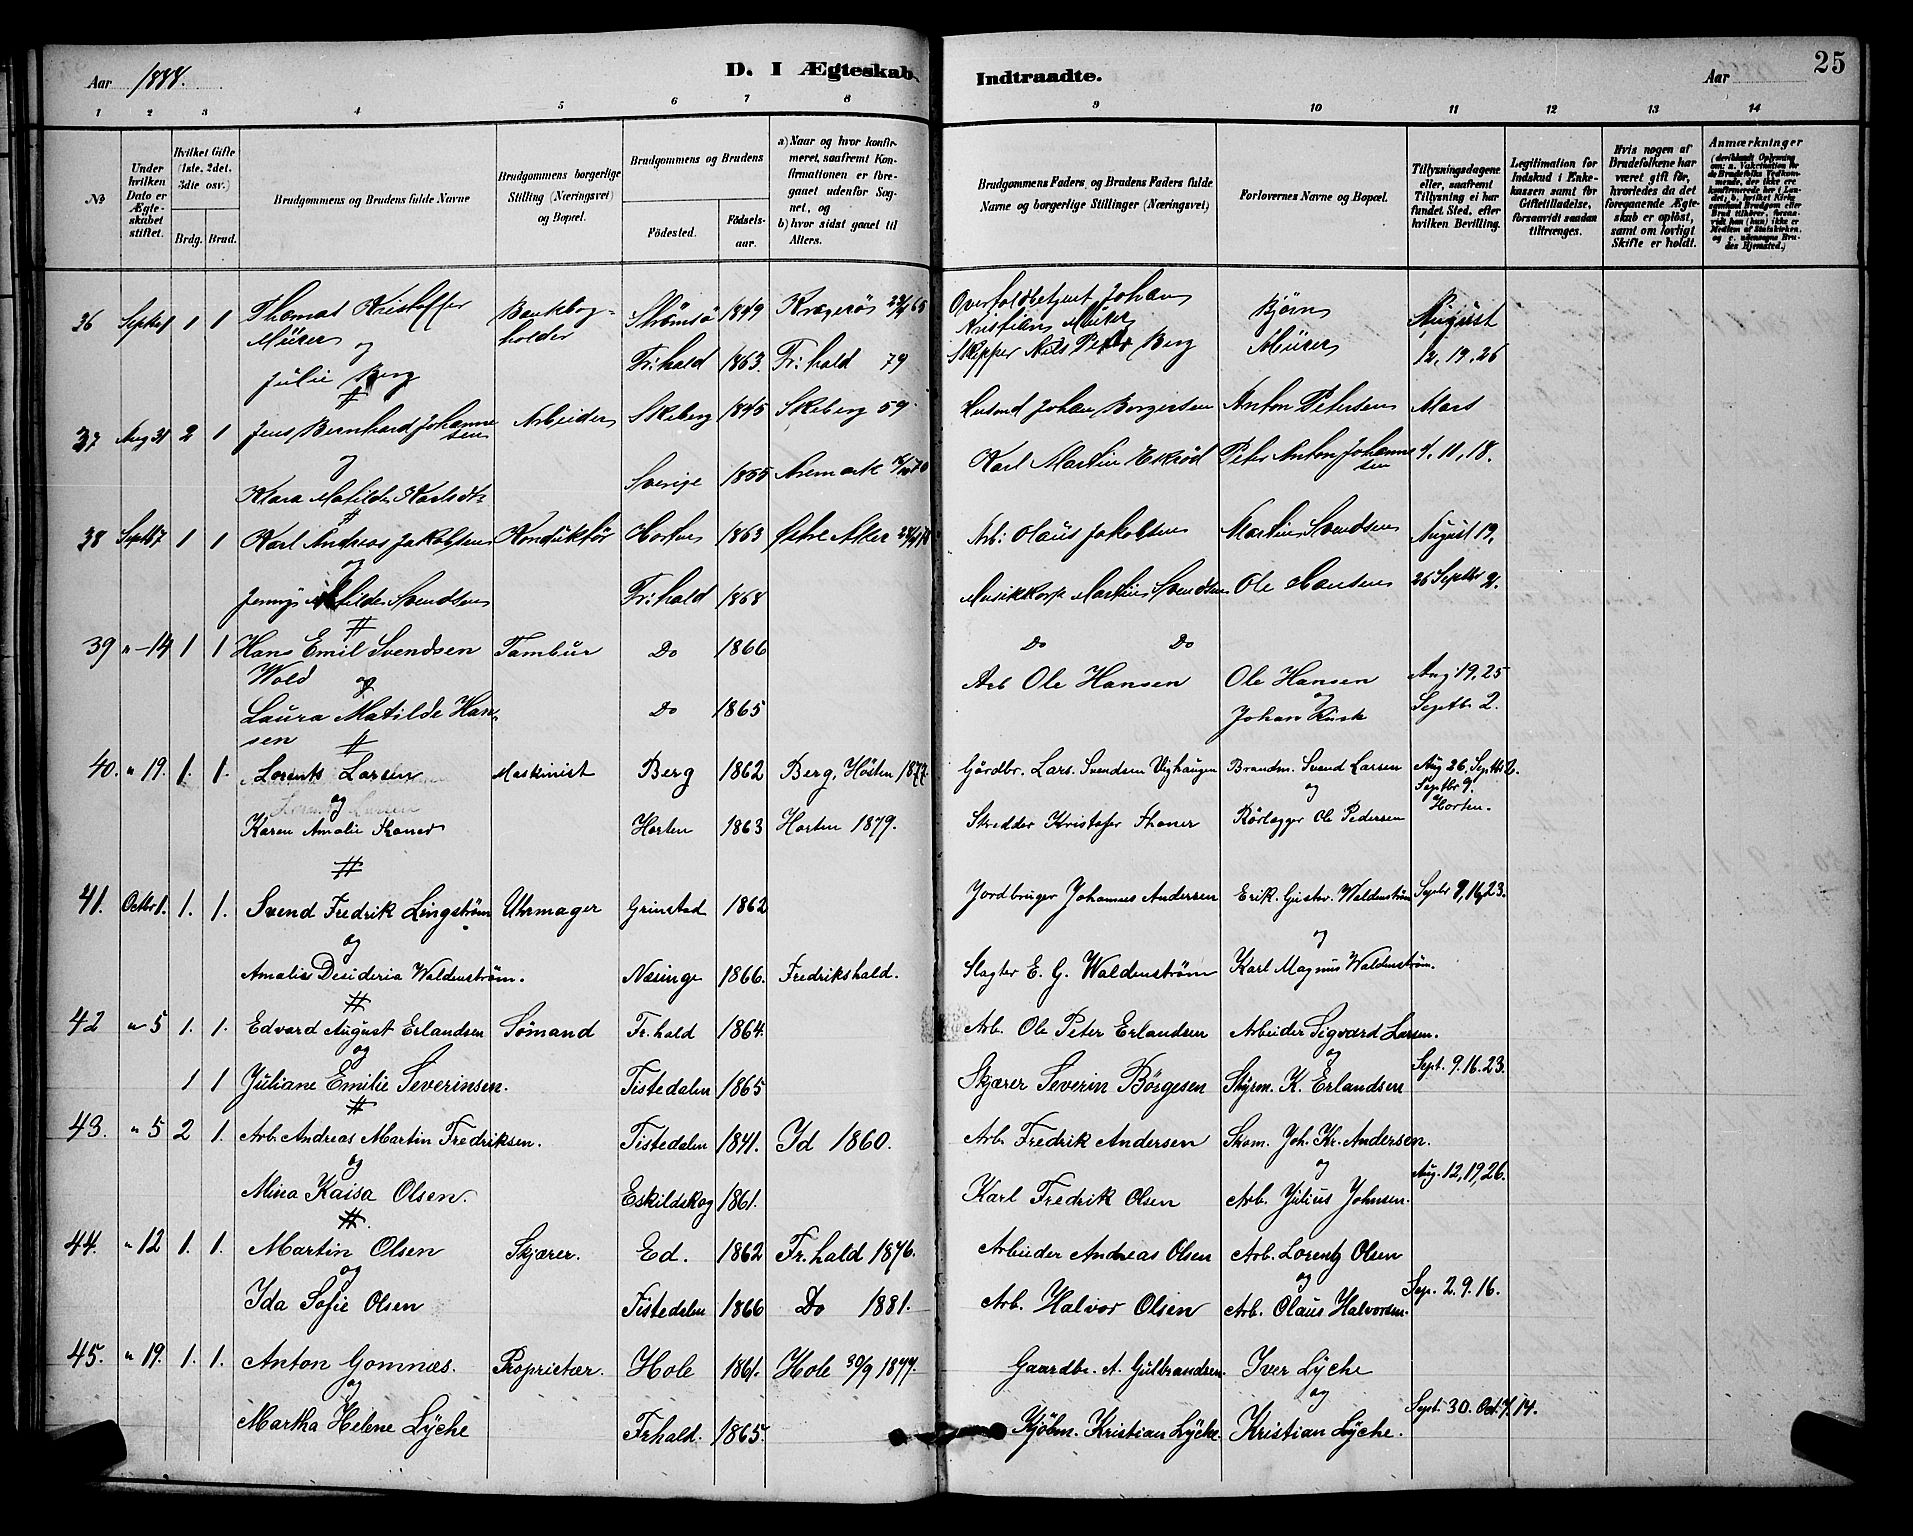 Aar 1888.
D. I Ægteskab Indtraadte.
Aar
25
1 2 3 4 5 6 7 8 9 10 11 12 13 14
No
Under hvilken Dato er Ægteskabet stiftet.
Hvilket Gifte (1ste, 2det, 3die osv.)
Brdg. Brud.
Brudgommens og Brudens fulde Navne
Brudgommens borgerlige Stilling (Næringsvei) og Bopæl.
Brudgommens og Brudens
Fødested. Fødselsaar.
a) Naar og hvor konfirmeret, saafremt Konfirmationen er foregaaet udenfor Sognet, og
b) hvor sidst gaaet til Alters.
Brudgommens Faders og Brudens Faders fulde Navne og borgerlige Stillinger (Næringsvei)
Forlovernes Navne og Bopæl.
Tillysningsdagene eller, saafremt Tillysning ei har fundet Sted, efter hvilken Bevilling.
Legitimation for Indskud i Enkekassen samt for Giftetilladelse, forsaavidt saadan tiltrænges.
Hvis nogen af Brudefolkene har været gift før, hvorledes da det foregaaende Ægteskab er opløst, samt om lovligt Skifte er holdt.
Anmærkninger
36 Septbr 1 1 1 Thomas Kristoffer Strømsø 1849 Kragerø 65 Overtoldbetjent Johan Bjørn August
Mürer holder Kristian Mürer
og Fr:hald 1863. Fr:hald 79 Skipper Nils Peter Berg Mürer 12, 19, 26
Julie Berg
37 Aug 31 2 1 Jens Bernhard Johannesen Arbeider Skeberg 1845 Skeberg 59 Husmd Johan Borgersen Anton Petersen Mars
og Karl Martin Ekrød Peter Anton Johannesen 4, 11, 18.
Klara Matilde Karlsdtr Sverige 1855 Aremark
38 Septbr 7 1 1 Karl Andreas Jakobsen Konduktør Horten 1863 Østre Aker Arb: Olaus Jakobsen Martin Svendsen August 19,
og
Jenny Matilde Svendsen Fr:hald 1868 Musikkorp Martin Svendsen Ole Hansen 26 Septbr 2.
39 " -14 1 1 Hans Emil Svendsen Tambur Do 1866 Do Do
Wold og Arb Ole Hansen Ole Hansen Aug 19, 25
Laura Matilde Hansen Do 1865 og Johan Kusk Septbr 2.
40. " 19. 1. 1. Lorents Larsen Maskinist Berg 1862 Berg, Høsten 1877. Gårdbr. Lars Svendsen Vighaugen Brandm. Svend Larsen Aug 26, Septbr 2.
og og Septbr 9.
Karen Amalie Thoner Horten 1863 Horten 1879. Skrædder Kristofer Thoner Rørlægger Ole Pedersen Horten.
41. Octbr 1. 1. 1. Svend Fredrik Lingstrøm Uhrmager Grinstad 1862 Jordbruger Johannes Andersen Erik Gustav Waldenstrøm Septbr 9, 16, 23.
og og
Amalia Desideria Waldenstrøm. Næsinge 1866. Fredrikshald. Slagter E. G. Waldenstrøm Karl Magnus Waldenstrøm.
42 " 5 1. 1. Edvard August Erlandsen Sømand Fr.hald 1864. Arb. Ole Peter Erlandsen Arbeider Sigvard Larsen.
og og Sept. 9. 16. 23.
1 1 Juliane Emilie Severinsen. Tistedalen 1865 Skjærer Severin Børgesen Styrm. K. Erlandsen
43. " 5 2 1. Arb. Andreas Martin Fredriksen. Tistedalen 1841. Id 1860. Arb. Fredrik Andersen Skom. Joh. Kr. Andersen.
og og Aug. 12, 19, 26.
Mina Kaisa Olsen. Eskildskog 1861. Karl Fredrik Olsen Arb. Julius Johnsen.
44. " 12 1. 1. Martin Olsen Skjærer. Ed. 1862 Fr.hald 1876. Arbeider Andreas Olsen Arb. Lorentz Olsen
og og Sep. 2. 9. 16.
Ida Sofie Olsen Tistedalen 1866 Do 1881. Arb. Halvor Olsen Arb. Olaus Halvorsen.
45. " 19. 1. 1. Anton Gomnæs. Proprietær. Hole 1861. Hole 30/9 1877. Gaardbr. A. Gulbrandsen. Iver Lyche
og og Sept. 30. Oct. 7. 14.
Martha Helene Lyche Frhald. 1865. Kjøbm. Kristian Lyche. Kristian Lyche.